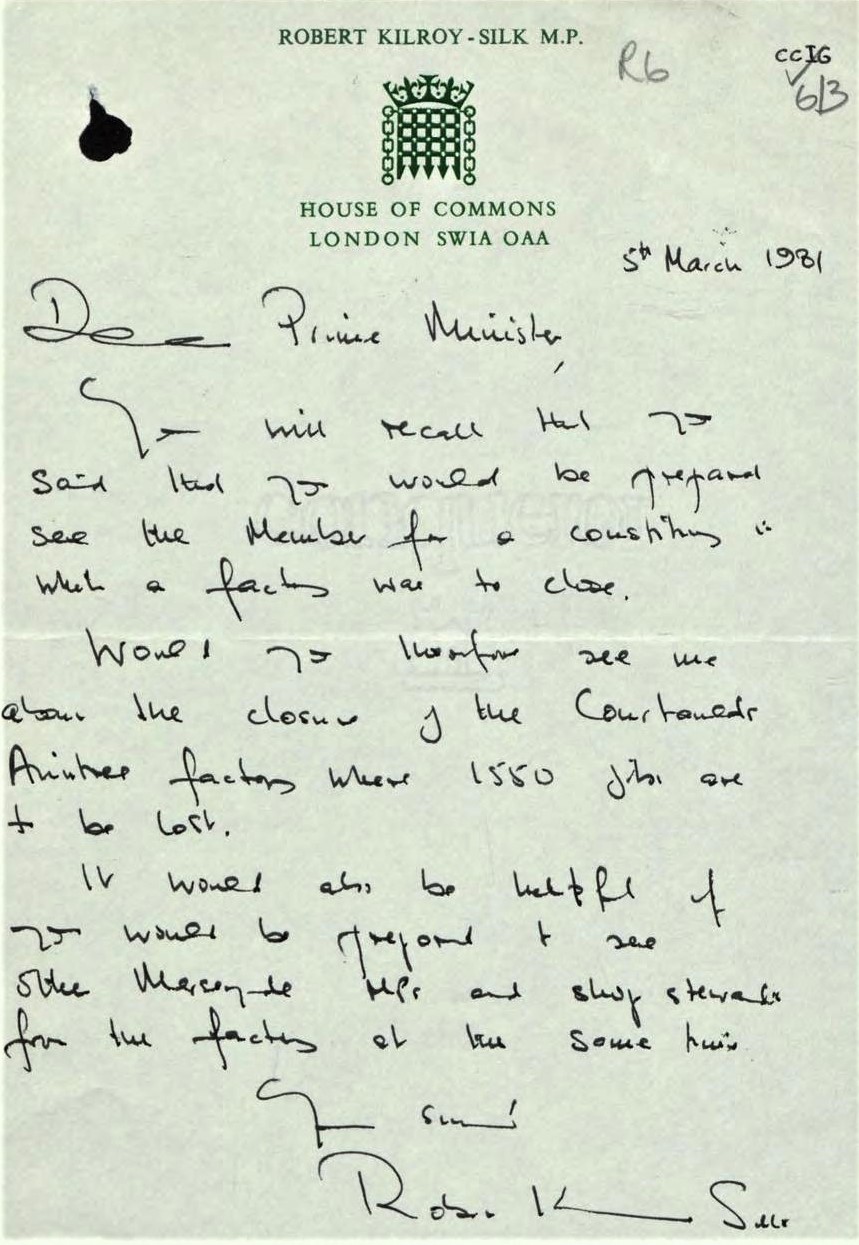 ROBERT KILROY-SILK M.P.
R6
ccIG
6/3
HOUSE OF COMMONS
LONDON SW1A OAA
5th March 1981
Dear Prime Minister,
You will recall that you
said that you would be prepared
see the Member for a constituency in
which a factory was to close.
Would you therefore see me
about the closure of the Courtaulds
Aintree factory where 1550 jobs are
to be lost.
It would also be helpful if
you would be prepared to see
other Merseyside MPs and shop stewards
from the factory at the same time.
Yours sincerely
Robert Kilroy Silk